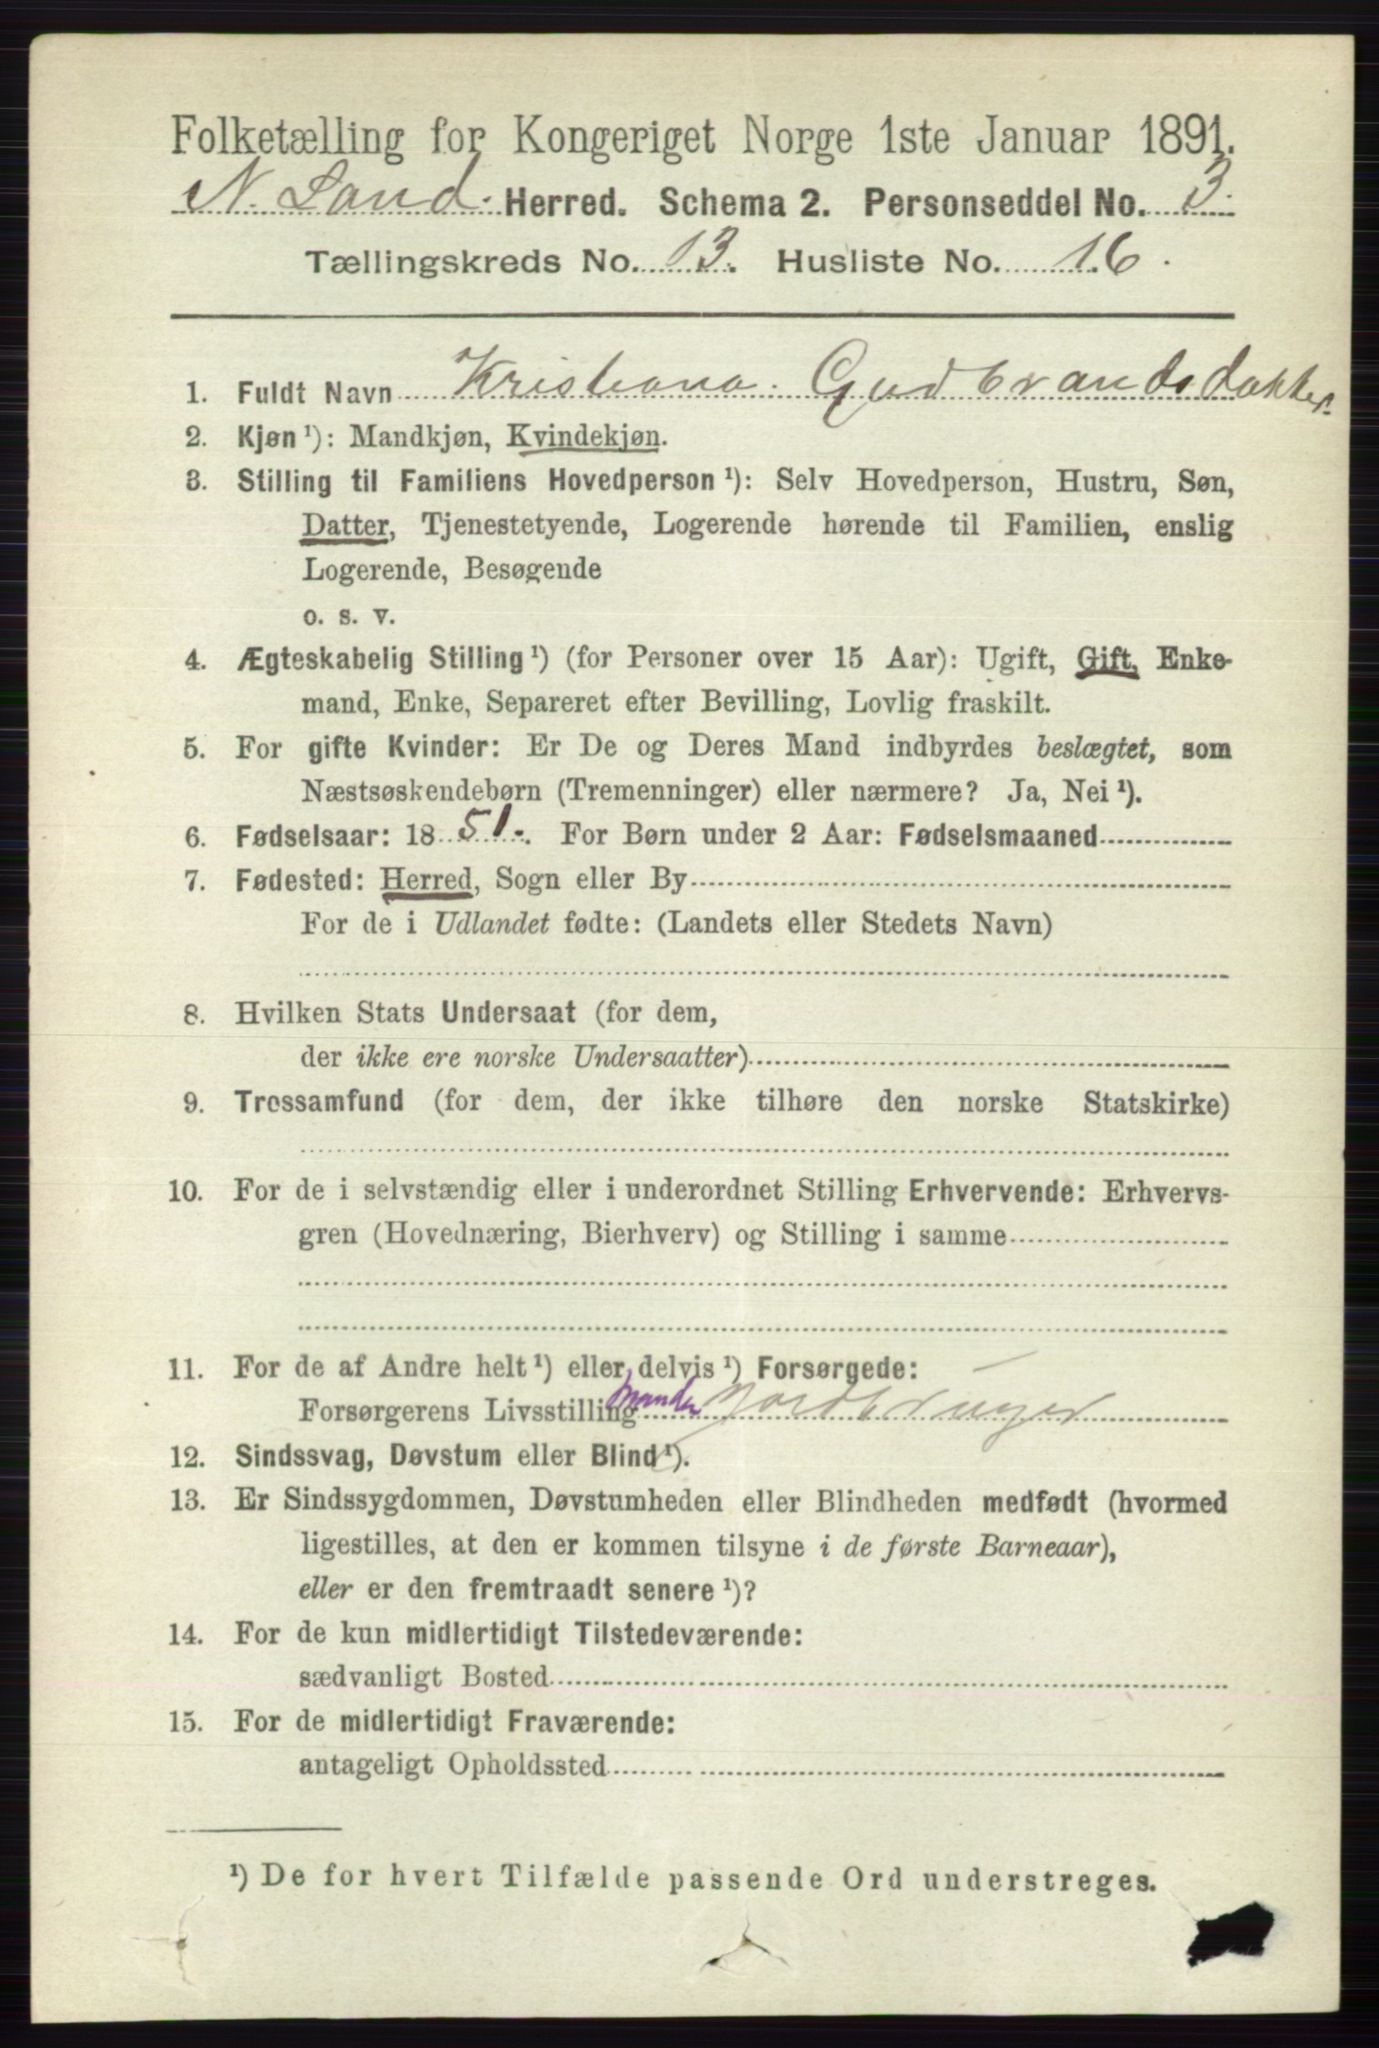 Folketælling for Kongeriget Norge 1ste Januar 1891.
N. Land. Herred. Schema 2. Personseddel No. 3.
Tællingskreds No. 13. Husliste No. 16.
1. Fuldt Navn Kristiana. Gudbrandsdatter.
2. Kjøn ¹): Mandkjøn, Kvindekjøn.
3. Stilling til Familiens Hovedperson ¹): Selv Hovedperson, Hustru, Søn,
Datter, Tjenestetyende, Logerende hørende til Familien, enslig
Logerende, Besøgende
o. s. v.
4. Ægteskabelig Stilling ¹) (for Personer over 15 Aar): Ugift, Gift, Enke-
mand, Enke, Separeret efter Bevilling, Lovlig fraskilt.
5. For gifte Kvinder: Er De og Deres Mand indbyrdes beslægtet, som
Næstsøskendebørn (Tremenninger) eller nærmere? Ja, Nei ¹).
6. Fødselsaar: 1851. For Børn under 2 Aar: Fødselsmaaned
7. Fødested: Herred, Sogn eller By
For de i Udlandet fødte: (Landets eller Stedets Navn)
8. Hvilken Stats Undersaat (for dem,
der ikke ere norske Undersaatter)
9. Trossamfund (for dem, der ikke tilhøre den norske Statskirke)
10. For de i selvstændig eller i underordnet Stilling Erhvervende: Erhvervs-
gren (Hovednæring, Bierhverv) og Stilling i samme
11. For de af Andre helt ¹) eller delvis ¹) Forsørgede:
Forsørgerens Livsstilling Manden Jordbruger
12. Sindssvag, Døvstum eller Blind ¹).
13. Er Sindssygdommen, Døvstumheden eller Blindheden medfødt (hvormed
ligestilles, at den er kommen tilsyne i de første Barneaar),
eller er den fremtraadt senere ¹)?
14. For de kun midlertidigt Tilstedeværende:
sædvanligt Bosted
15. For de midlertidigt Fraværende:
antageligt Opholdssted
¹) De for hvert Tilfælde passende Ord understreges.